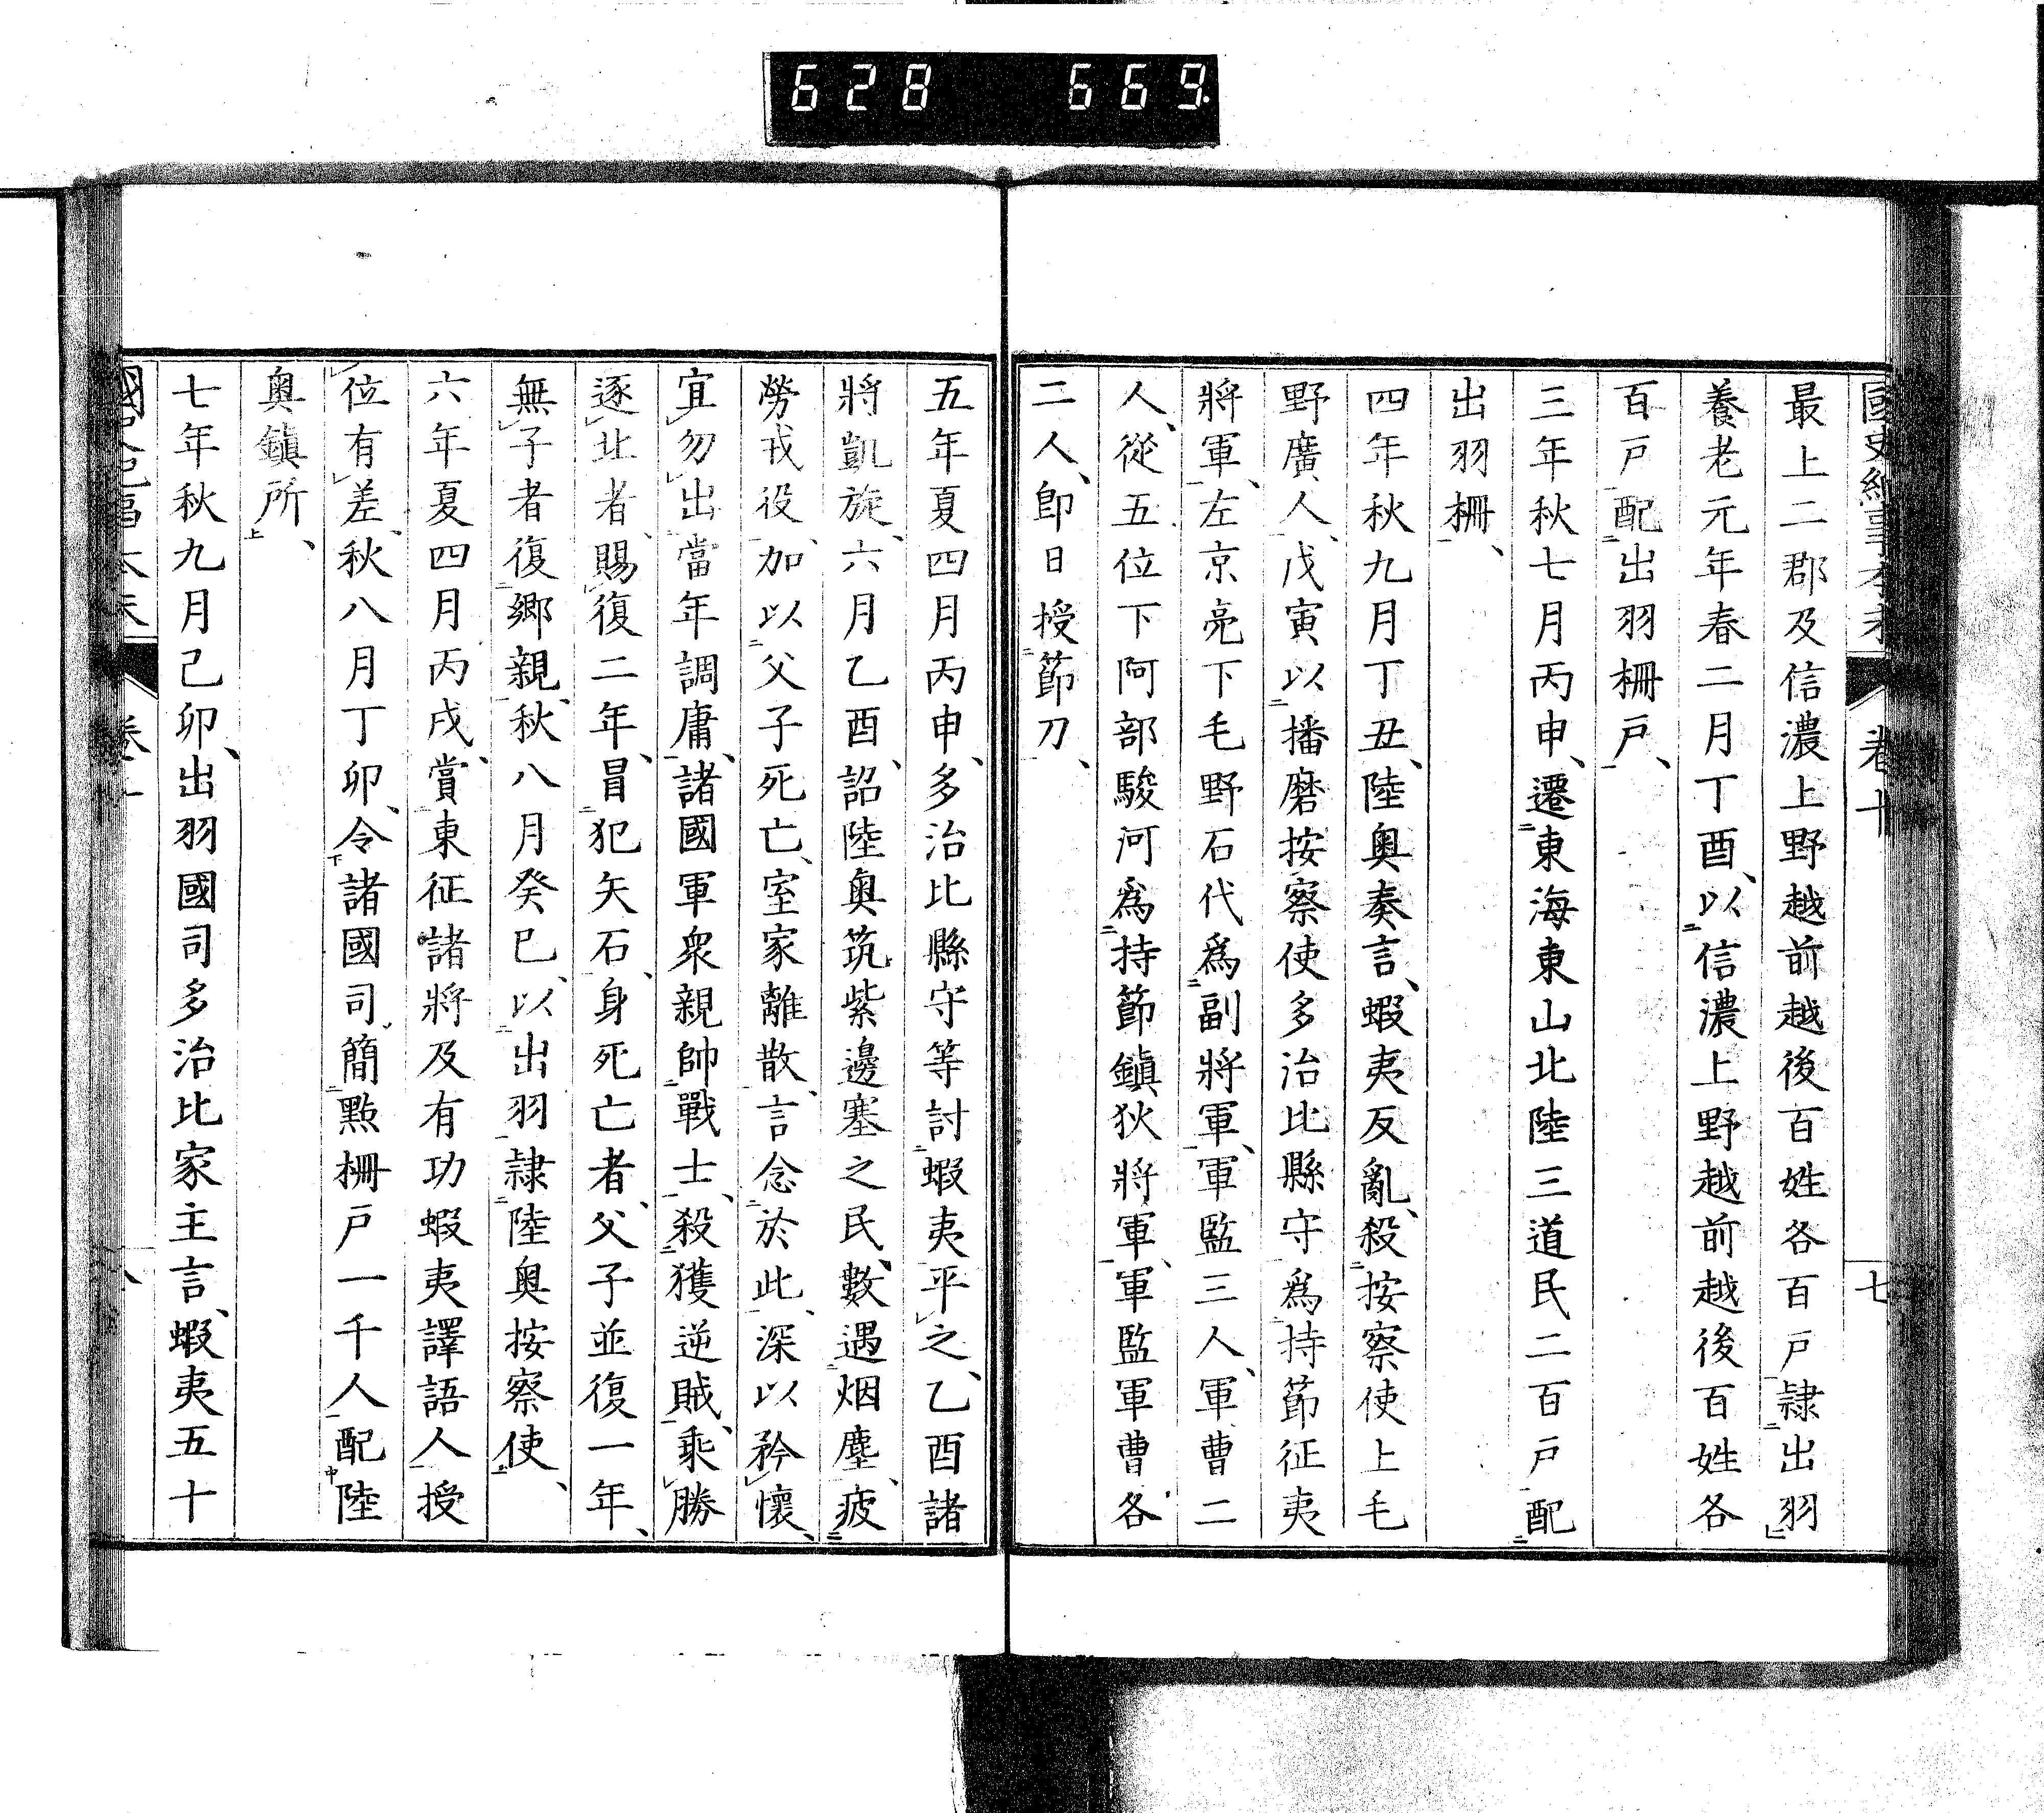 628 669
國史紀事本末 卷十 七
最上二郡及信濃上野越前越後百姓各百戸隷出羽
養老元年春二月丁酉、以信濃上野越前越後百姓各
百戸配出羽柵戸、
三年秋七月丙申、遷東海東山北陸三道民二百戸配
出羽柵、
四年秋九月丁丑、陸奥奏言、蝦夷反亂、殺按察使上毛
野廣人、戊寅以播磨按察使多治比縣守爲持節征夷
將軍、左京亮下毛野石代爲副將軍、軍監三人、軍曹二
人、從五位下阿部駿河爲持節鎮狄將軍、軍監軍曹各
二人、卽日授節刀、
五年夏四月丙申、多治比縣守等討蝦夷平之、乙酉諸
將凱旋、六月乙酉、詔陸奥筑紫邊塞之民、數遇烟塵、疲
勞戎役、加以父子死亡、室家離散、言念於此、深以矜懷、
宜勿出當年調庸、諸國軍衆親帥戰士、殺獲逆賊、乘勝
逐北者、賜復二年、冒犯矢石、身死亡者、父子並復一年、
無子者復鄉親、秋八月癸巳、以出羽隷陸奥按察使、
六年夏四月丙戌、賞東征諸將及有功蝦夷譯語人授
位有差、秋八月丁卯、令諸國司簡點柵戸一千人配陸
奥鎮所、
七年秋九月己卯、出羽國司多治比家主言、蝦夷五十